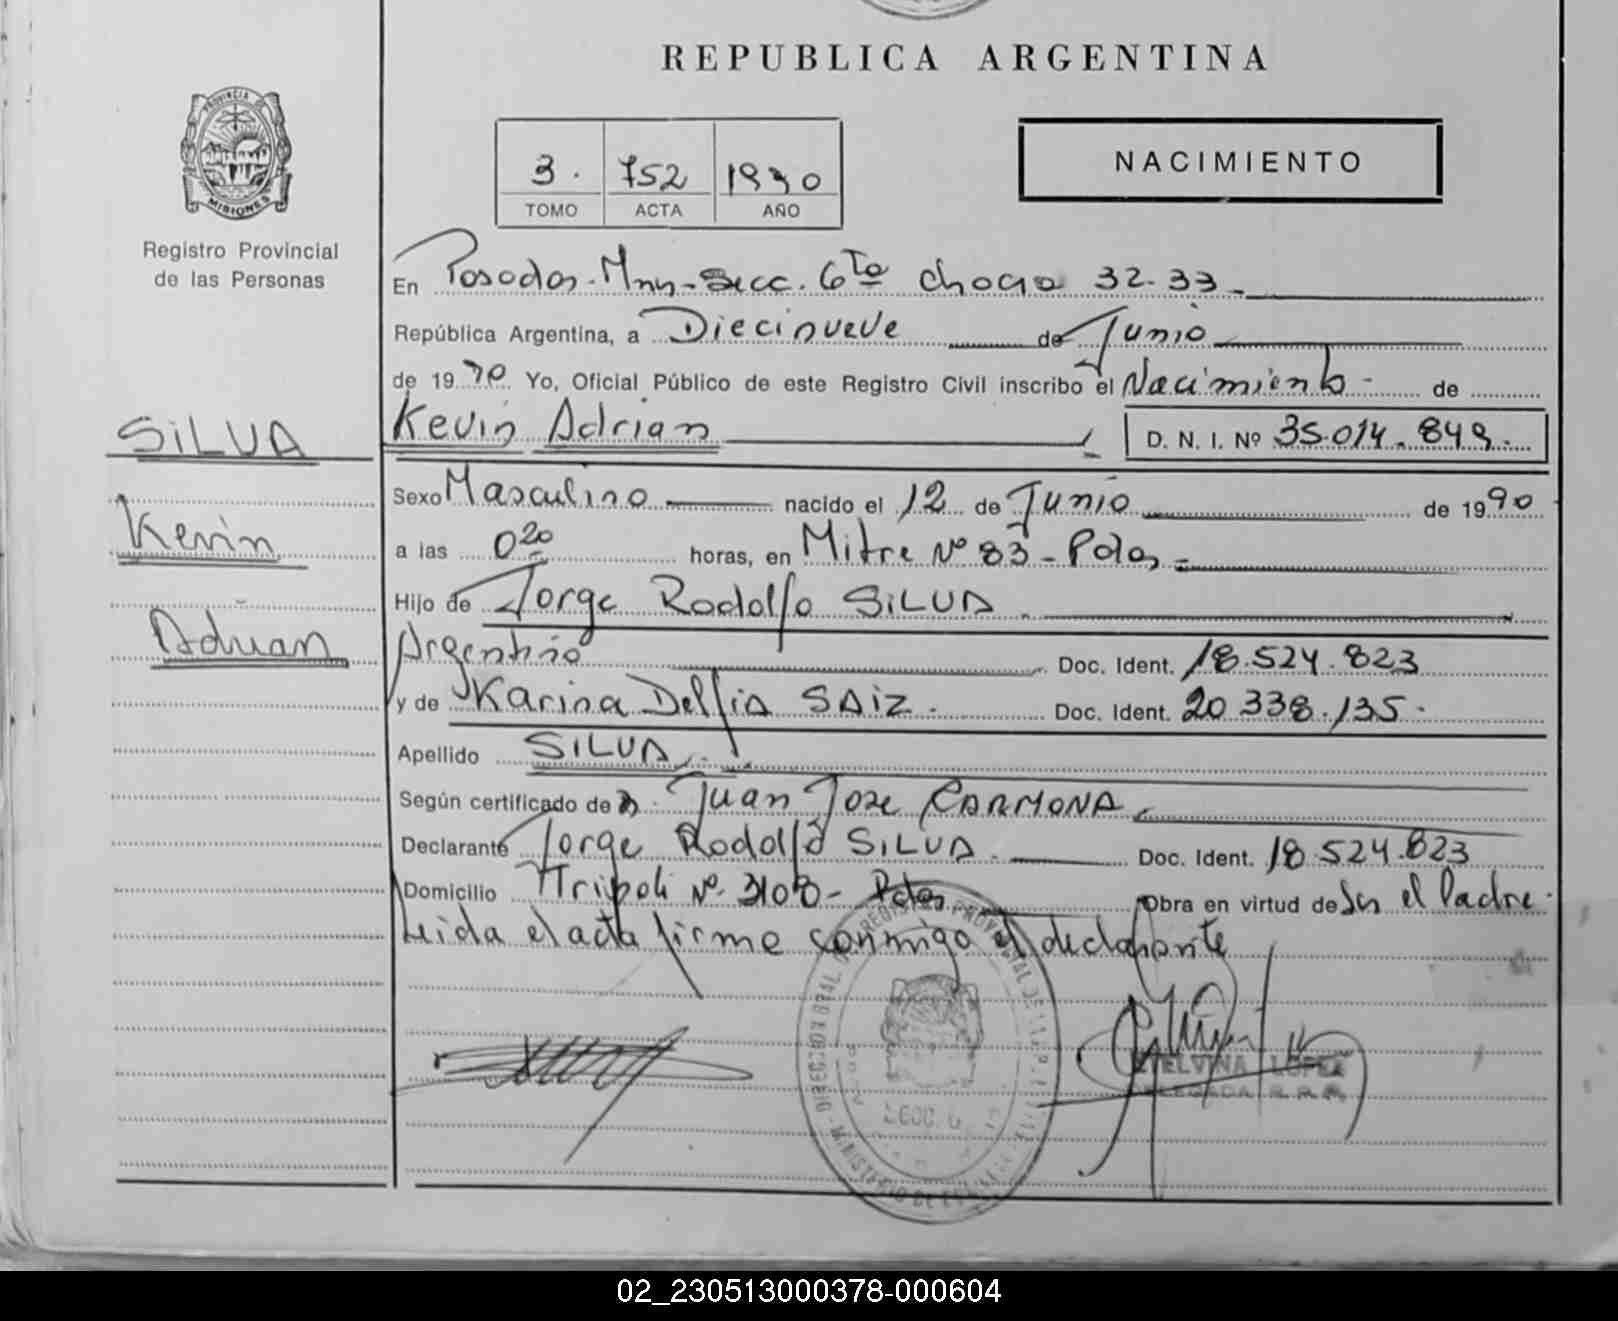 REPUBLICA ARGENTINA
PROVINCIA DE
MISIONES
Registro Provincial
de las Personas
3. 752 1990
TOMO ACTA AÑO
NACIMIENTO
En Posadas-Mnes-Secc. 6ta chacra 32-33
República Argentina, a Diecinueve de Junio
de 1990 Yo, Oficial Público de este Registro Civil inscribo el Nacimiento de
SILVA
Kevin Adrian D. N. I. Nº 35.014.849.
Sexo Masculino nacido el 12 de Junio de 1990
Kevin
a las 0 20 horas, en Mitre Nº 83 - Pdas
Hijo de Jorge Rodolfo SILVA
Adrian
Argentino Doc. Ident. 18.524.823
y de Karina Delfia SAIZ. Doc. Ident. 20 338.135.
Apellido SILVA.
Según certificado de Juan Jose CARMONA
Declarante Jorge Rodolfo SILVA. Doc. Ident. 18.524.823
Domicilio Tripoli Nº 3108 - Pdas Obra en virtud de Ser el Padre.
Leida el acta firme conmigo el declarante
REGISTRO PROVINCIAL DE LAS
MINISTERIO DE
SECC. 6
ETELVINA LOPEZ
DELEGADA R.R.P.
02_230513000378-000604